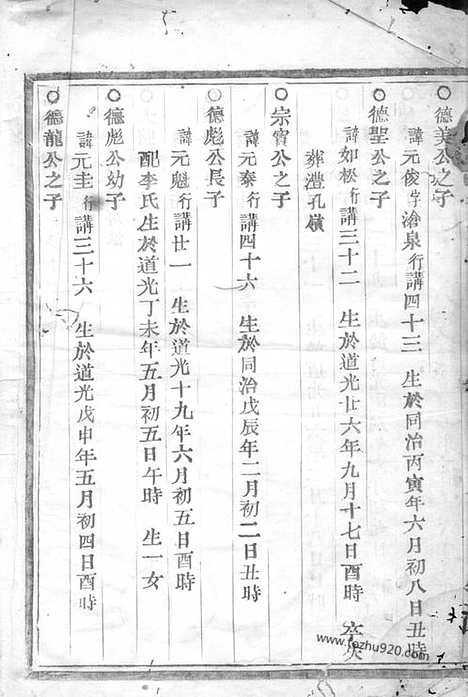 德美公之子
諱元俊字滄泉行講四十三 生於同治丙寅年六月初八日丑時
德聖公之子
諱如松行講三十二 生於道光廿六年九月十七日酉時 卒
葬澧孔嶺
宗寳公之子
諱元泰行講四十六 生於同治戊辰年二月初二日丑時
德彪公長子
諱元魁行講廿一 生於道光十九年六月初五日酉時
配李氏生於道光丁未年五月初五日午時 生一女
德彪公幼子
諱元圭行講三十六 生於道光戊申年五月初四日酉時
德龍公之子
www.fozhu920.com